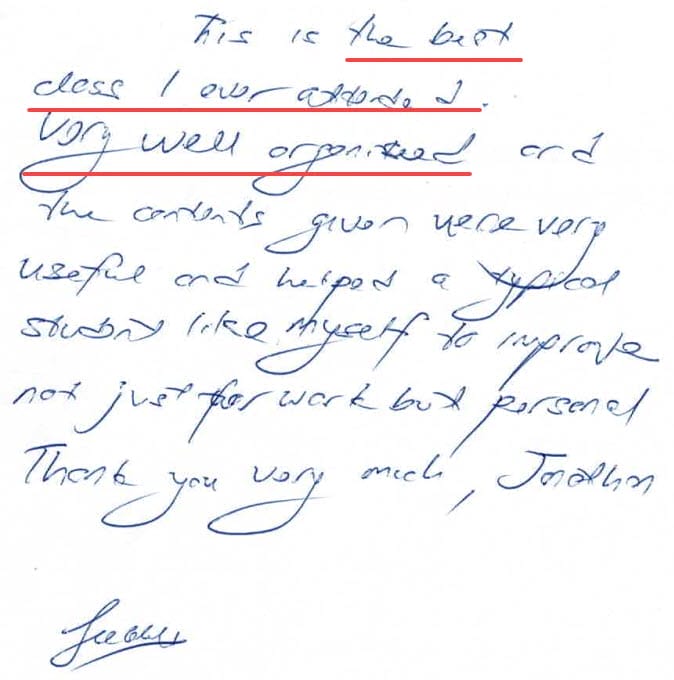 This is the best
class I ever attended.
Very well organized and
the contents given were very
useful and helped a typical
student like myself to improve
not just for work but personal
Thank you very much, Jonathan